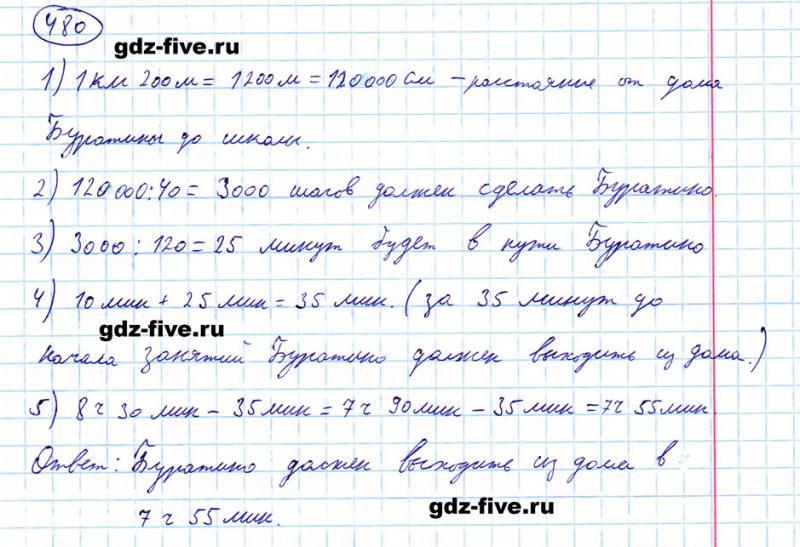 480
gdz-five.ru
1) 1 км 200 м = 1200 м = 120000 см – расстояние от дома
Буратины до школы.
2) 120000:40 = 3000 шагов должен сделать Буратино.
3) 3000 : 120 = 25 минут будет в пути Буратино
4) 10 мин + 25 мин = 35 мин. (за 35 минут до
gdz-five.ru
начала занятий Буратино должен выходить из дома.)
5) 8 ч 30 мин – 35 мин = 7 ч 90 мин – 35 мин = 7 ч 55 мин.
Ответ: Буратино должен выходить из дома в
7 ч 55 мин.
gdz-five.ru